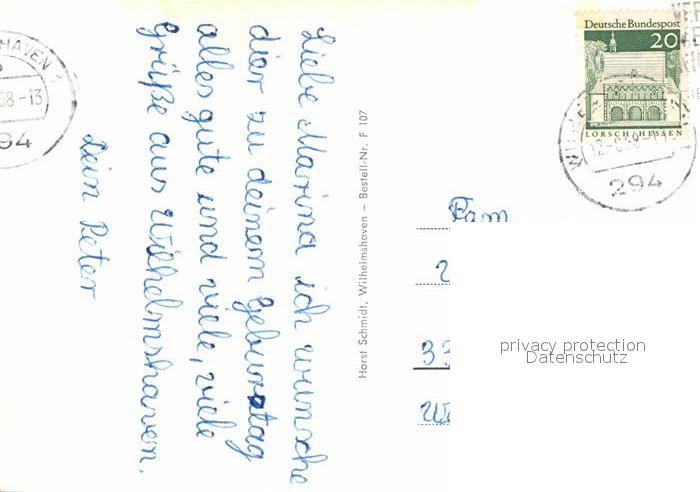 Liebe Marina ich wünsche
dier zu deinem Geburstag
alles gute und viele, viele
grüße aus Wilhelmshaven.
Dein Peter
Horst Schmidt, Wilhelmshaven – Bestell-Nr. F 107
HAVEN 1
68-13
294
Deutsche Bundespost
20
LORSCH/HESSEN
294
Fam
2
33
privacy protection
Datenschutz